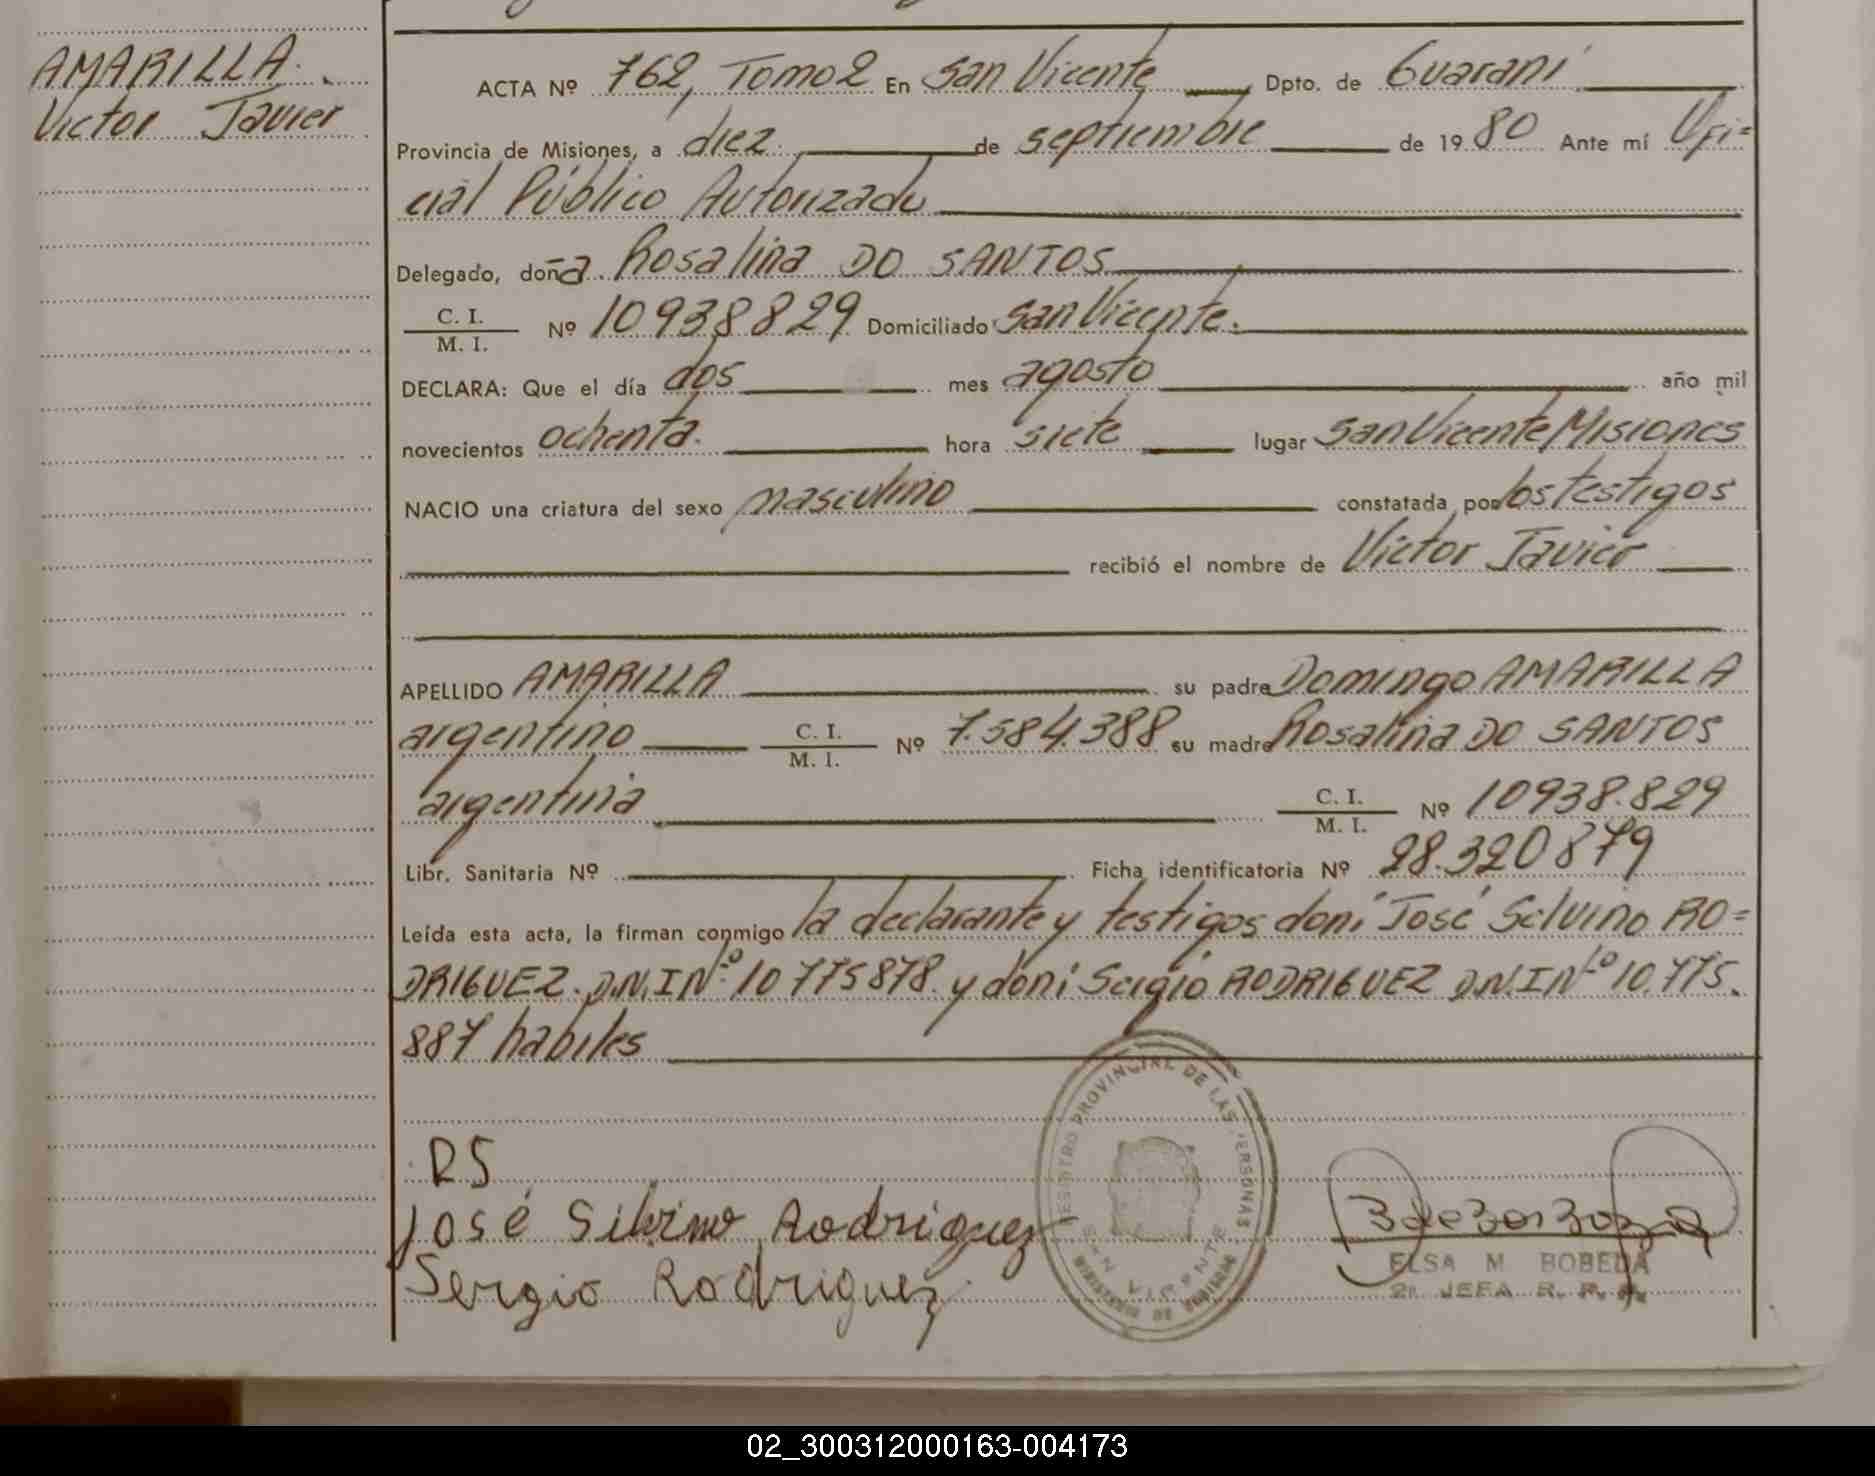 AMARILLA.
Victor Javier
ACTA Nº 762, Tomo 2 En San Vicente Dpto. de Guaraní
Provincia de Misiones, a diez de septiembre de 1980 Ante mí Ofi=
cial Público Autorizado
Delegado, doña Rosalina DO SANTOS
C. I.
M. I.
Nº 10938829 Domiciliado San Vicente.
DECLARA: Que el día dos mes agosto año mil
novecientos ochenta. hora siete lugar San Vicente Misiones
NACIO una criatura del sexo masculino constatada por los testigos
recibió el nombre de Victor Javier
APELLIDO AMARILLA su padre Domingo AMARILLA
argentino C. I. / M. I. Nº 7.584.388 su madre Rosalina DO SANTOS
argentina C. I. / M. I. Nº 10938.829
Libr. Sanitaria Nº Ficha identificatoria Nº 28.320879
Leída esta acta, la firman conmigo la declarante y testigos doni José Selvino RO=
DRIGUEZ. D.N.I Nº 10775878. y doni Sergio RODRIGUEZ D.N.I Nº 10.775.
887 habiles
RS
José Silvino Rodriguez
Sergio Rodriguez
REGISTRO PROVINCIAL DE LAS PERSONAS
SAN VICENTE
MINISTERIO DE GOBIERNO
ELSA M BOBEDA
2ª JEFA R. P. P.
02_300312000163-004173